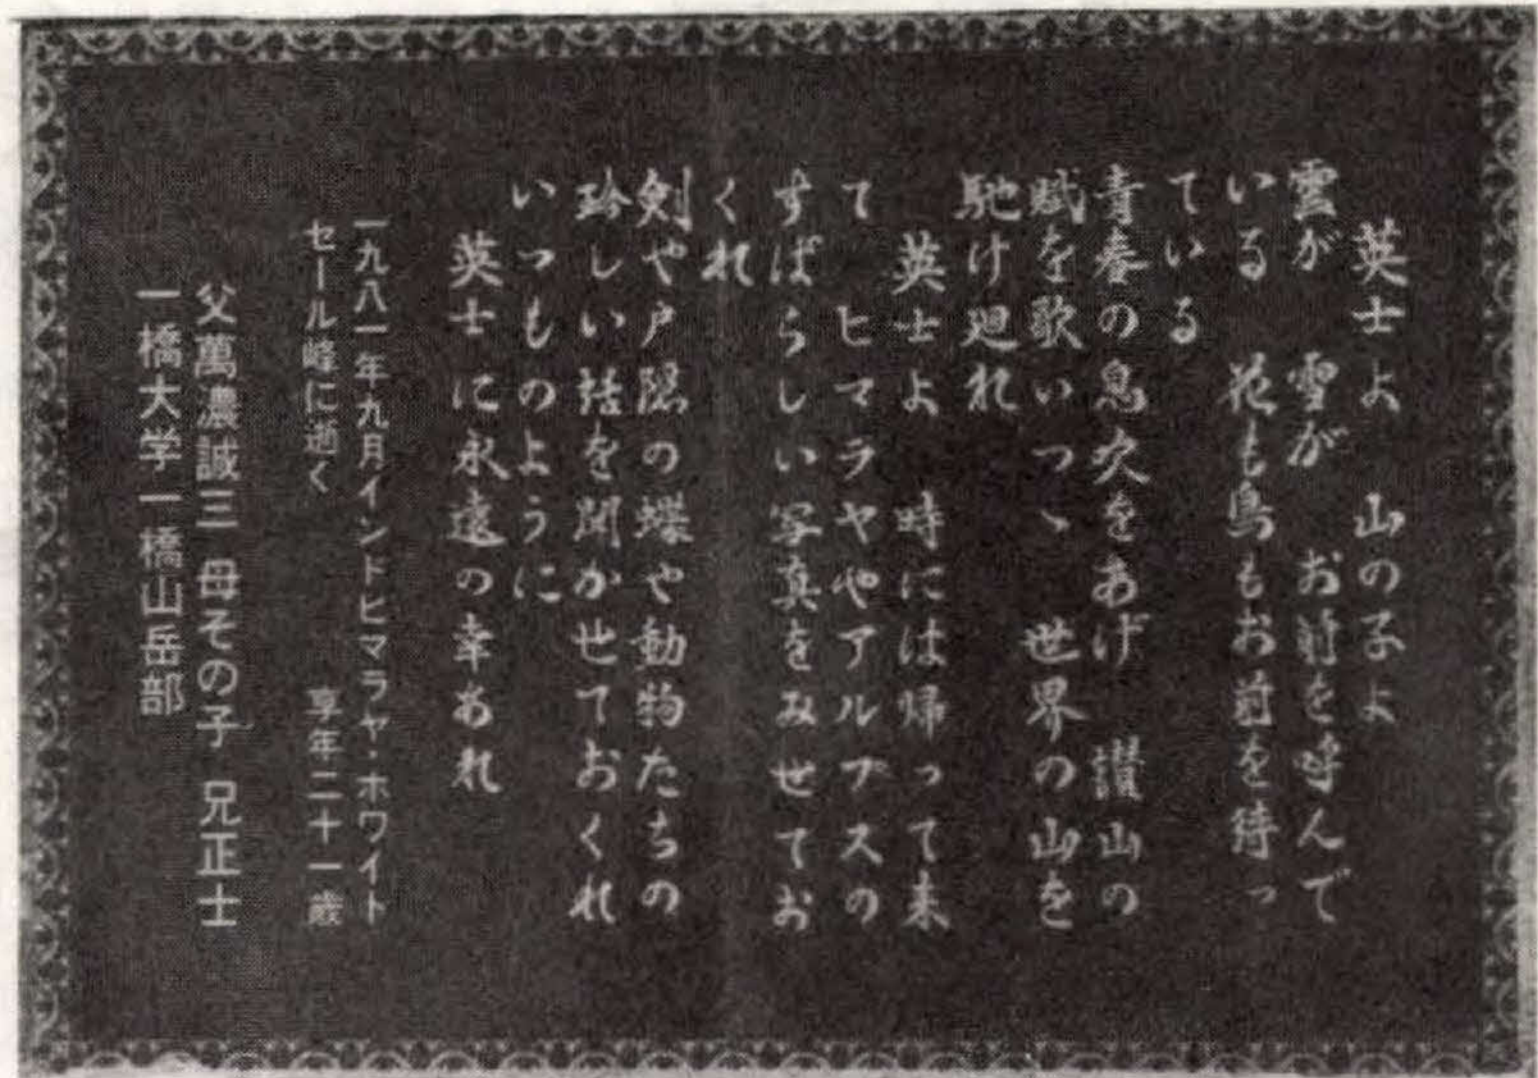 英士よ 山の子よ
雲が 雪が お前を呼んで
いる 花も鳥もお前を待っ
ている
青春の息吹をあげ 讃山の
賦を歌いつゝ 世界の山を
馳け廻れ
英士よ 時には帰って来
て ヒマラヤやアルプスの
すばらしい写真をみせてお
くれ
剣や戸隠の蝶や動物たちの
珍しい話を聞かせておくれ
いつものように
英士に永遠の幸あれ
一九八一年九月インドヒマラヤ・ホワイト
セール峰に逝く 享年二十一歳
父萬濃誠三 母その子 兄正士
一橋大学一橋山岳部